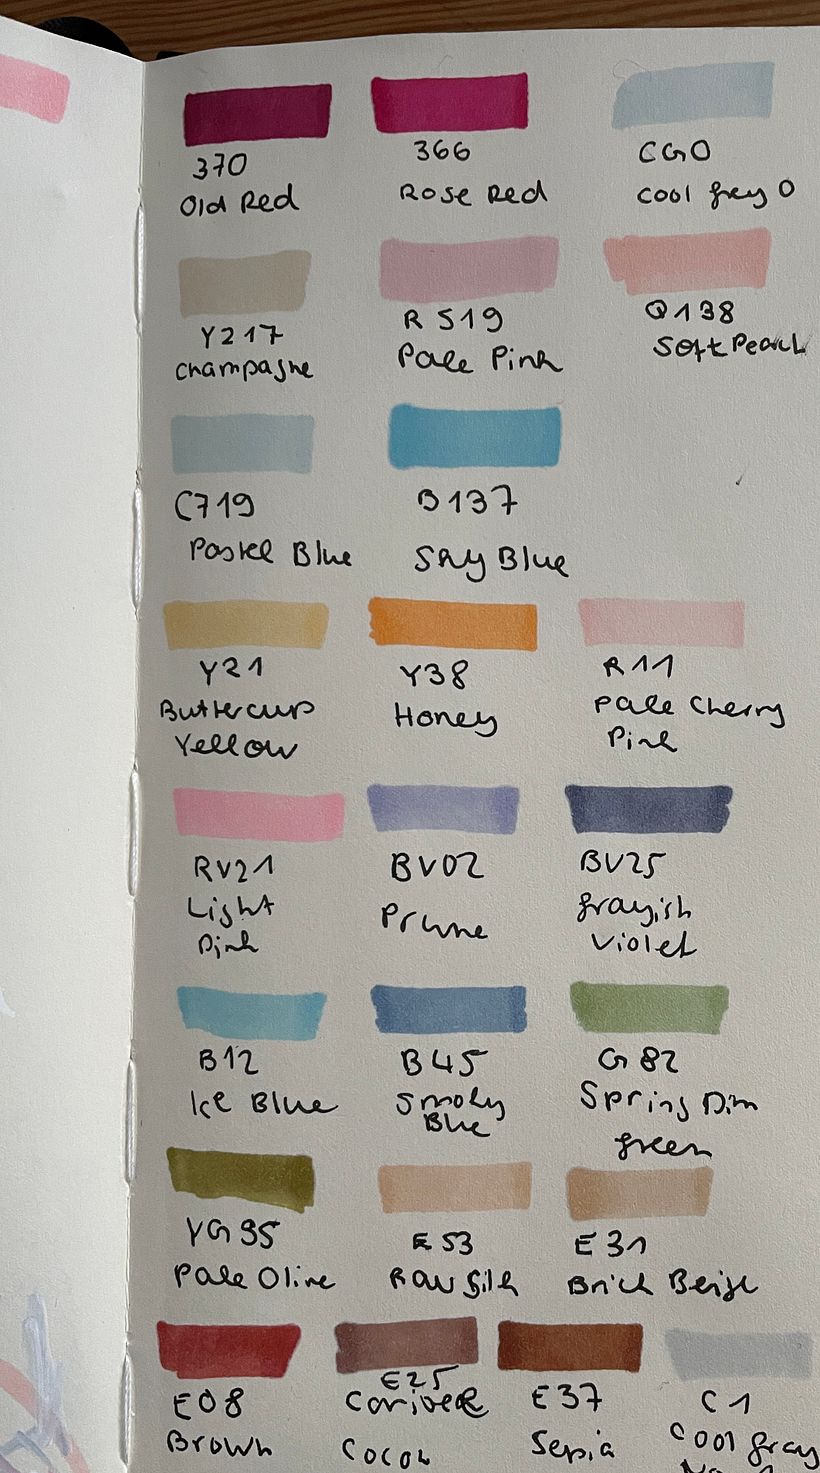 370
Old Red
366
Rose Red
CG0
Cool grey 0
Y217
Champagne
R519
Pale Pink
O138
Soft Peach
C719
Pastel Blue
B137
Sky Blue
Y21
Buttercup
Yellow
Y38
Honey
R11
Pale Cherry
Pink
RV21
Light
Pink
BV02
Prune
BV25
grayish
violet
B12
Ice Blue
B45
Smoky
Blue
G82
Spring Dim
green
YG95
Pale Olive
E53
Raw Silk
E31
Brick Beige
E08
Brown
E25
Caribe
Cocoa
E37
Sepia
C1
Cool gray